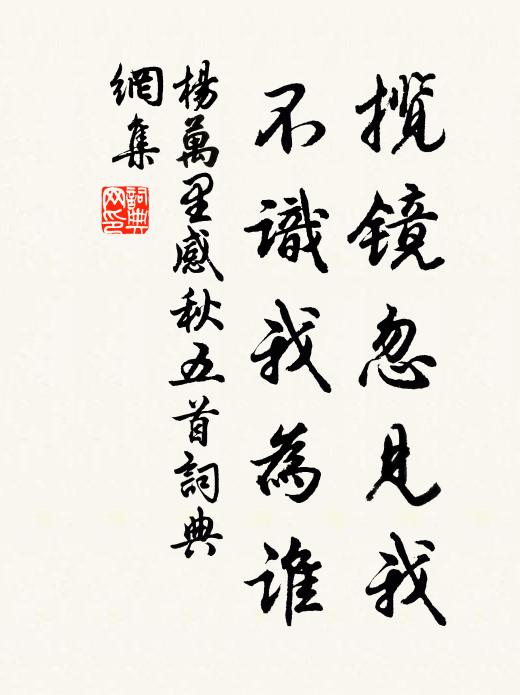 揽镜忽见我
不識我為誰
楊萬里感秋五首詞典
網集
詞典
网印